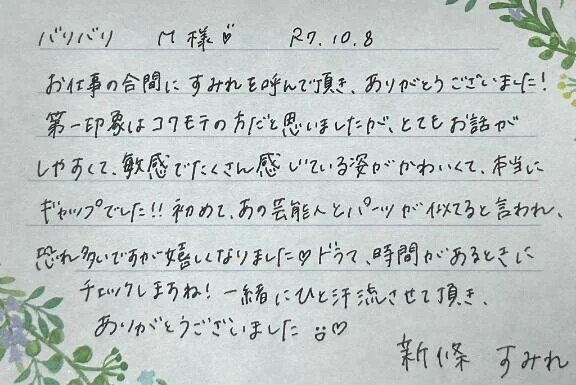 バリバリ M様♡ R7.10.8
お仕事の合間にすみれを呼んで頂き、ありがとうございました!
第一印象はコワモテの方だと思いましたが、とてもお話が
しやすくて、敏感でたくさん感じている姿がかわいくて、本当に
ギャップでした!!初めて、あの芸能人とパーツが似てると言われ、
恐れ多いですが嬉しくなりました♡ドラマ、時間があるときに
チェックしますね!一緒にひと汗流させて頂き、
ありがとうございました♡
新條 すみれ